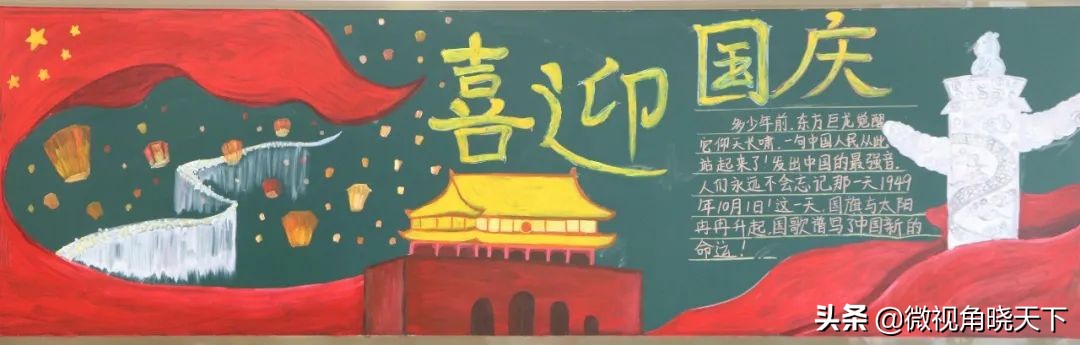 喜迎国庆
多少年前,东方巨龙觉醒
它仰天长啸,一句中国人民从此
站起来了!发出中国的最强音.
人们永远不会忘记,那一天1949
年10月1日!这一天,国旗与太阳
冉冉升起,国歌谱写了中国新的
命运!
头条 @微视角晓天下